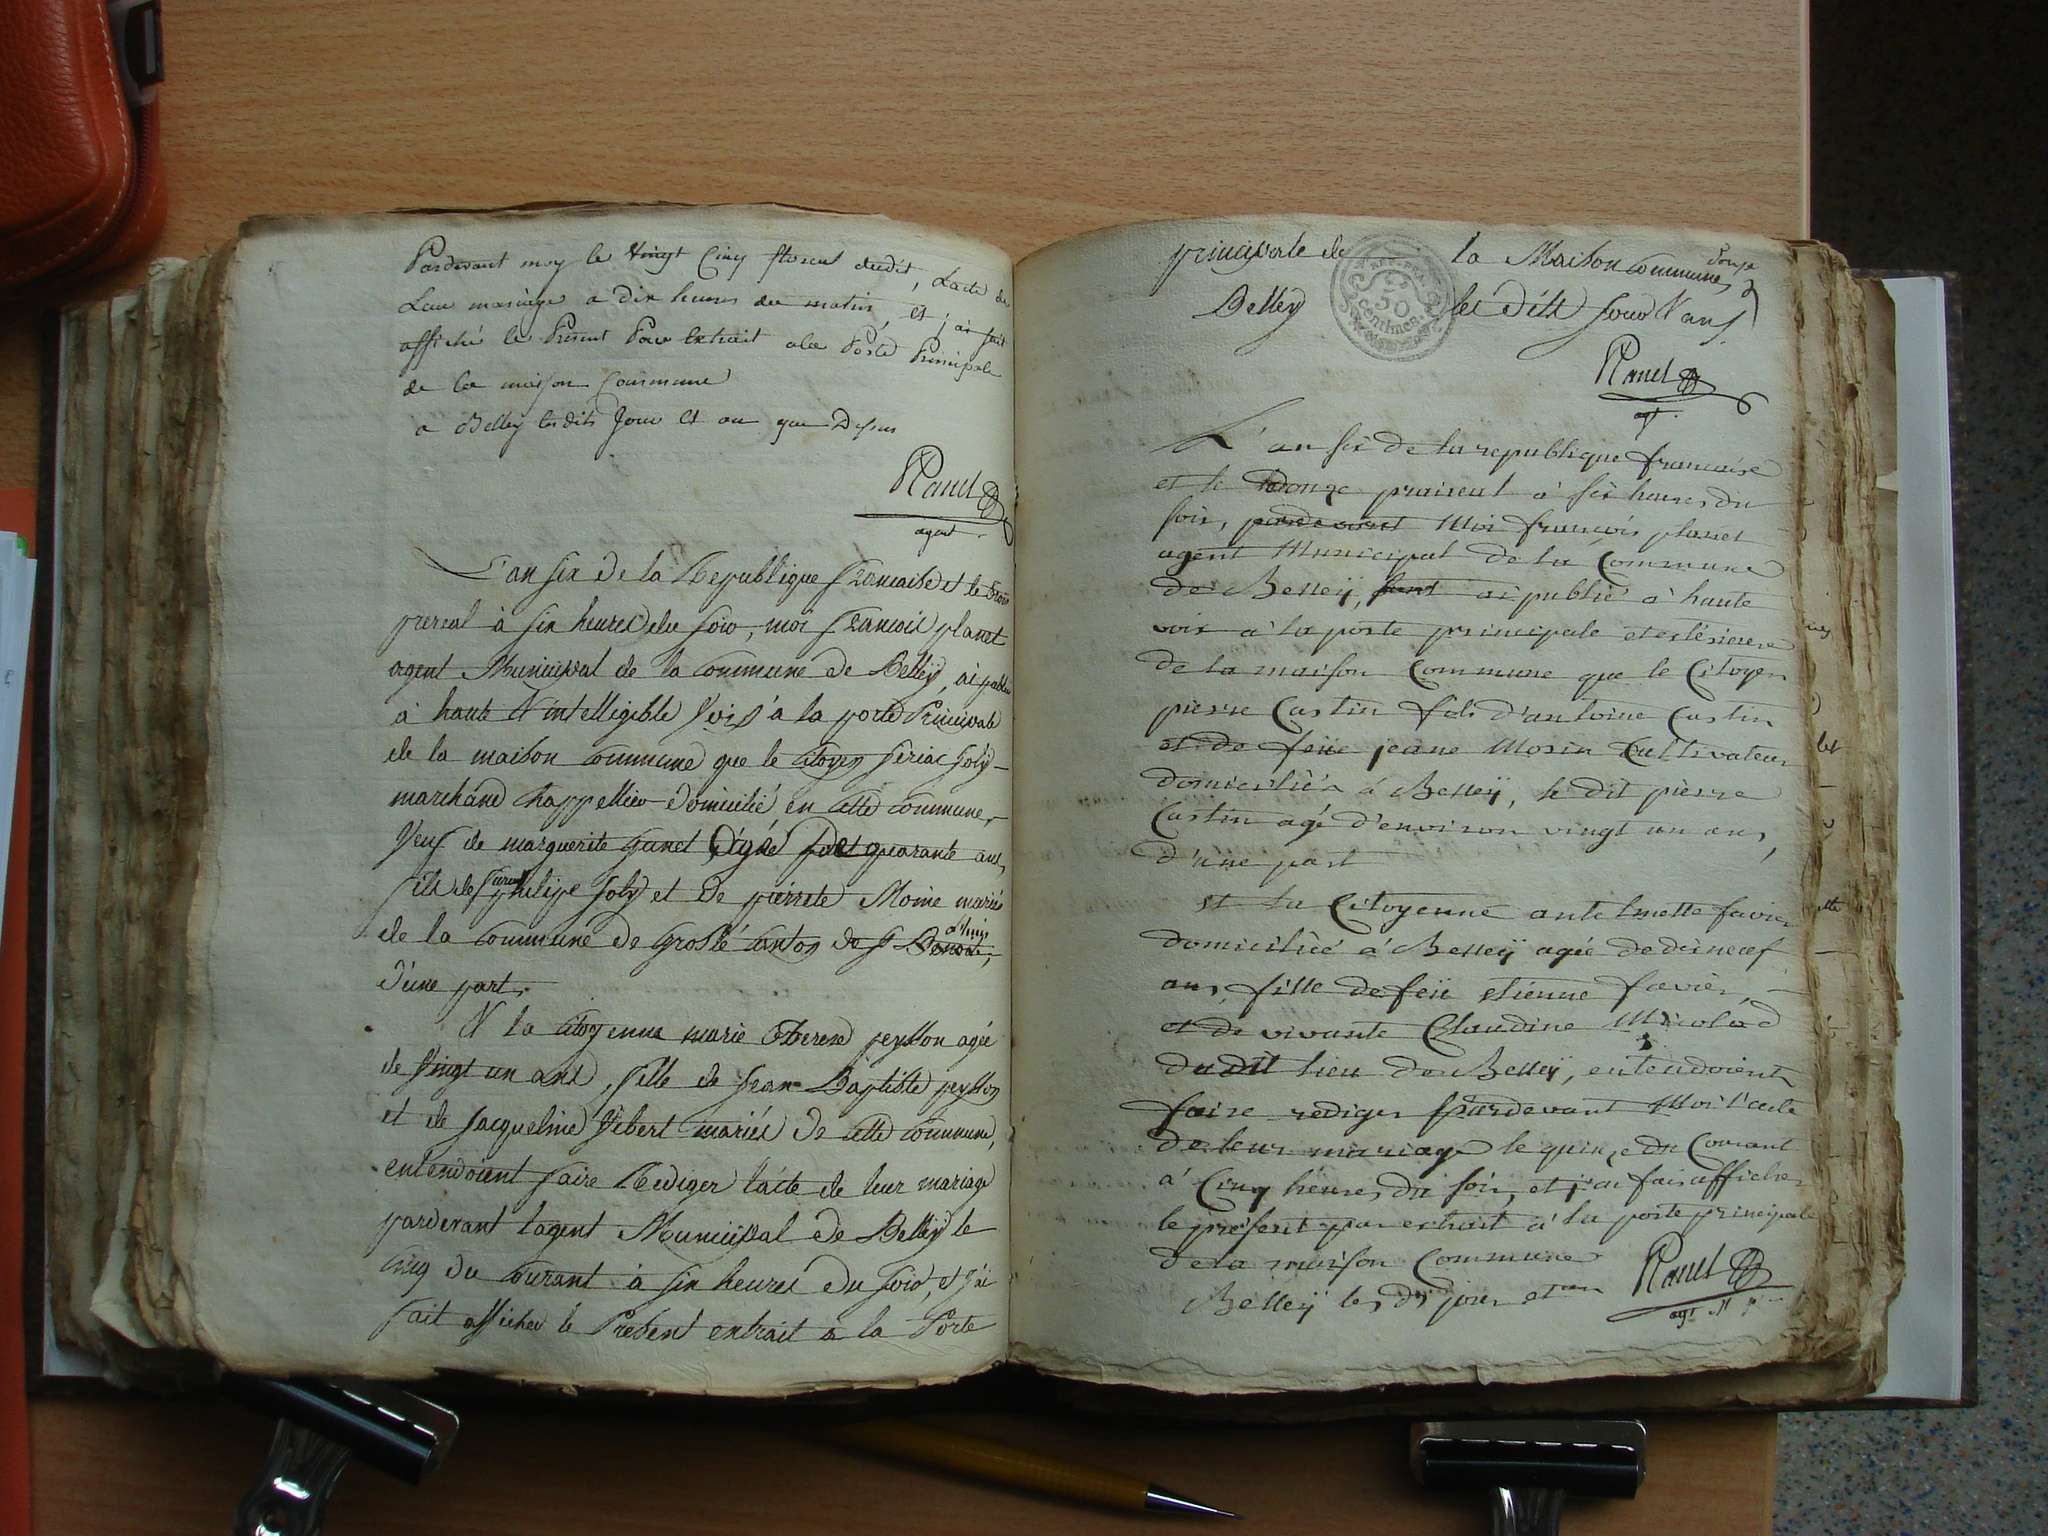 Pardevant moy le vingt Cinq floreal dudit, L'acte de
Leur mariage a dix heures du matin, et j'ai fait
affiché le Présent Pour Extrait a la Porte Principale
de la maison Commune
a Belley lesdits Jour et an que Dessus
Planet
agent
L'an six de la Republique francaise et le trois
prereal à six heures du soir, moi francois planet
agent Municipal de la commune de Belleÿ, ai publié
à haute & intelligible voix à la porte Principale
de la maison commune que le citoyen Siriac Joly
marchand chappellier domicilié en cette commune,
veuf de marguerite agé de quarante ans,
fils de philipe Joly et de pierrete Moine mariés
de la commune de Groslé canton de
d'une part,
& la citoyenne marie therese peysson agée
de vingt un ans, fille de Jean Baptiste peysson
et de Jacqueline Vibert mariés de cette commune,
entendoient faire Rediger l'acte de leur mariage
pardevant l'agent Municipal de Belleÿ le
cinq du courant à six heures du soir, et j'ai
fait afficher le Present extrait à la Porte
principale de la Maison commune,
Belley les dits jour & an
50
centimes
Planet
agt.
L'an six de la republique francaise
et le douze praireal à six heures du
soir, pardevant Moi françois planet
agent Municipal de la Commune
de Belleÿ, ai publié a haute
voix a la porte principale et extérieure
de la maison Commune que le Citoyen
pierre Castin fils d'antoine Castin
et de feüe jeane Morin Cultivateur
domicilié à Belleÿ, le dit pierre
Castin agé d'environ vingt un ans,
d'une part
et la Citoyenne antelmette favier
domiciliée à Belleÿ agée de dixneuf
ans, fille de feü etienne favier,
et de vivante Claudine
du dit lieu de Belleÿ, entendoient
faire rediger pardevant Moi l'acte
de leur mariage le quinze du Courant
à Cinq heures du soir, et j'ai fais afficher
le présent par extrait à la porte principale
de la maison Commune
Belleÿ les ds jour et an
Planet
agt. Mpal